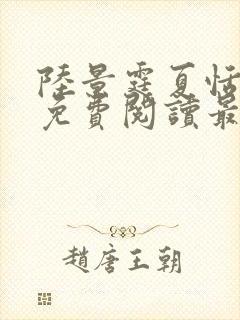 陸景霆夏恬
免費閱讀最
趙唐王朝